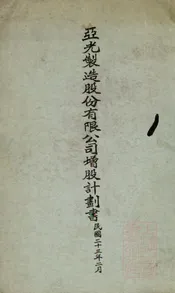 亞光製造股份有限公司增股計劃書
民國二十三年二月